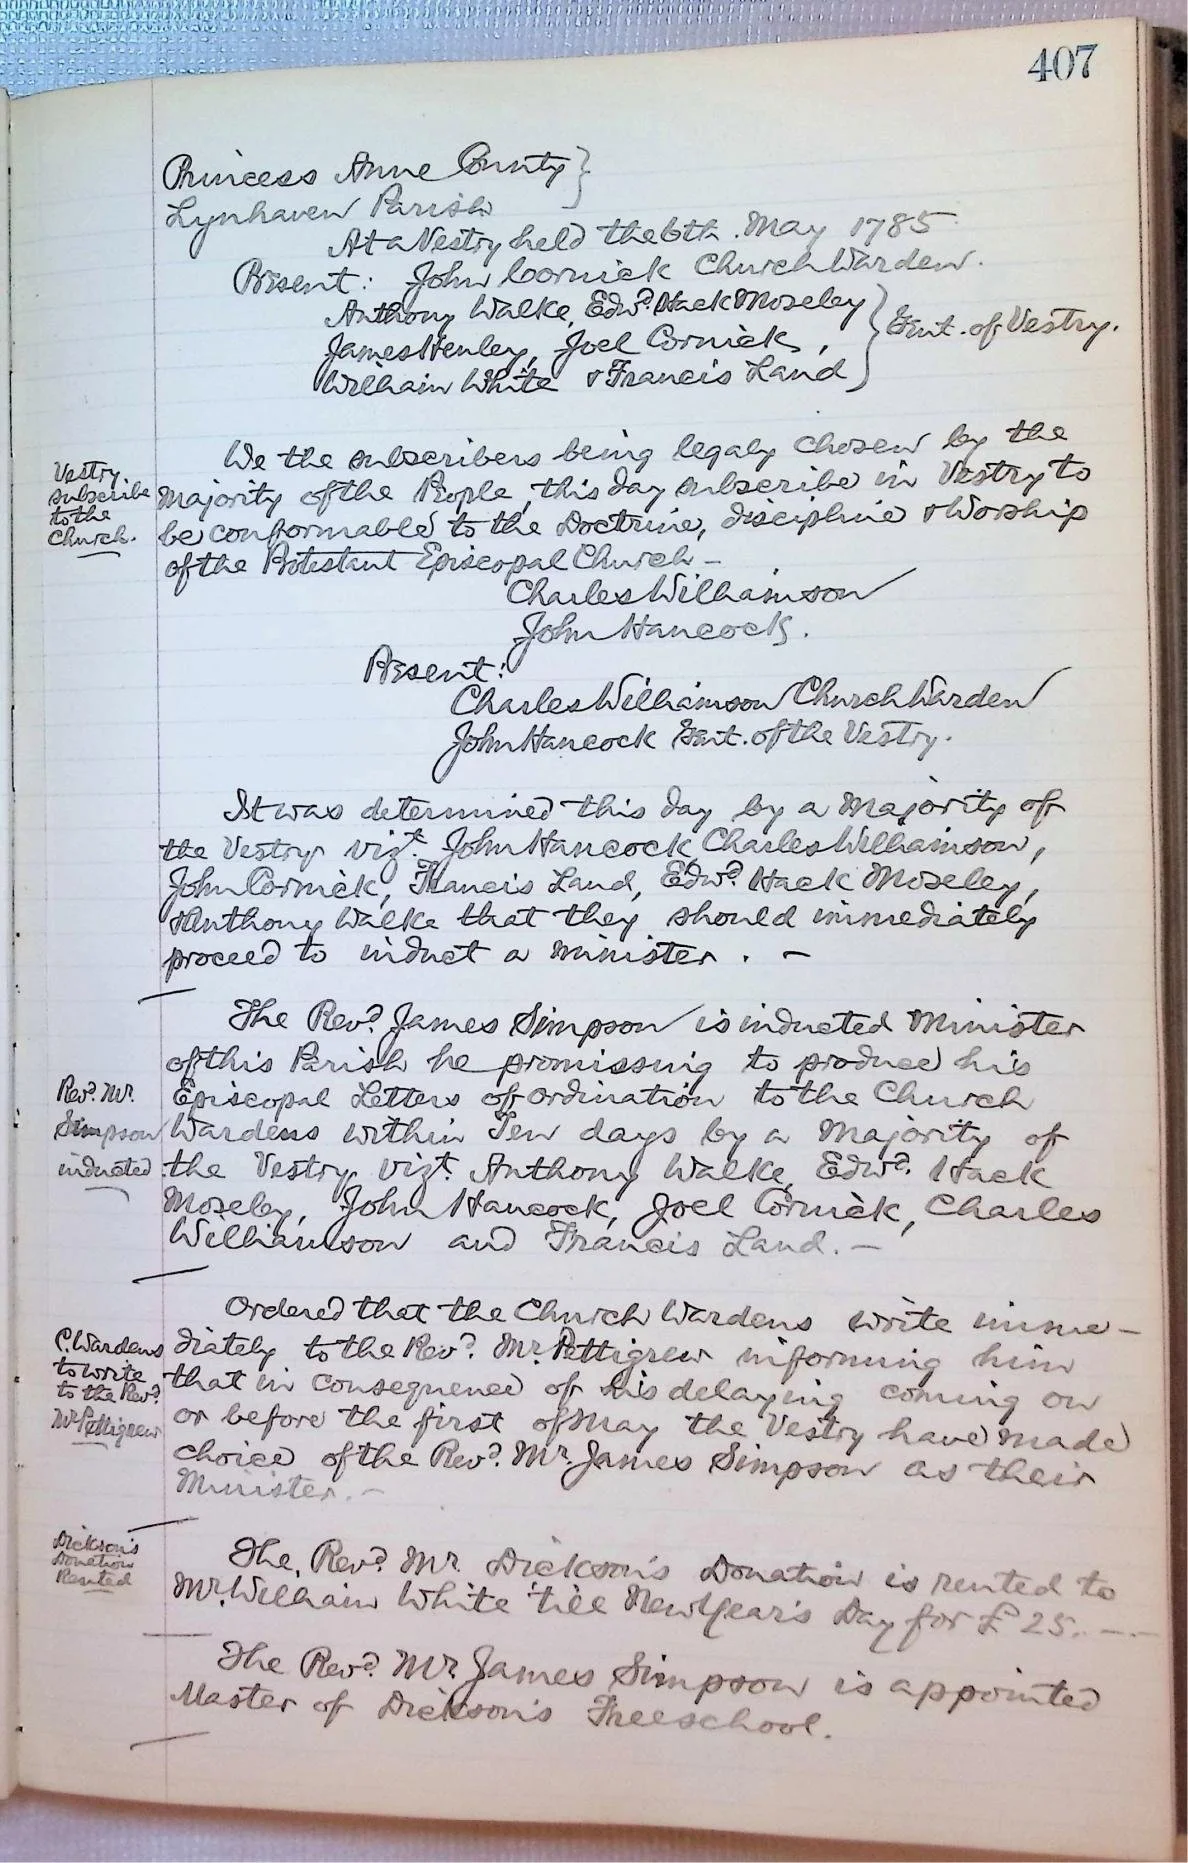 407
Princess Anne County }
Lynhaven Parish
At a Vestry held the 6th. May 1785
Present: John Cornick Church Warden.
Anthony Walke, Edwd. Hack Moseley
James Henley, Joel Cornick, } Gent. of Vestry.
William White & Francis Land
We the subscribers being legaly chosen by the
Vestry
subscribe
to the
Church.
Majority of the People, this day subscribe in Vestry to
be conformable to the Doctrine, discipline & Worship
of the Protestant Episcopal Church –
Charles Williamson
John Hancock.
Present:
Charles Williamson Church Warden
John Hancock Gent. of the Vestry.
It was determined this day by a Majority of
the Vestry vizt. John Hancock, Charles Williamson,
John Cornick, Francis Land, Edwd. Hack Moseley,
& Anthony Walke that they should immediately
proceed to induct a Minister. –
The Revd. James Simpson is inducted Minister
of this Parish he promissing to produce his
Revd. Mr.
Simpson
inducted
Episcopal Letters of ordination to the Church
Wardens within Ten days by a Majority of
the Vestry vizt. Anthony Walke, Edwd. Hack
Moseley, John Hancock, Joel Cornick, Charles
Williamson and Francis Land. –
Ordered that the Church Wardens write imme–
C. Wardens
to write
to the Revd.
Mr Pettigrew
diately to the Revd. Mr. Pettigrew informing him
that in consequence of his delaying coming on
or before the first of May the Vestry have made
choice of the Revd. Mr. James Simpson as their
Minister. –
Dickson's
Donation
Rented
The Revd. Mr. Dickson's Donation is rented to
Mr. William White 'till New Year's Day for £ 25. – –
The Revd. Mr James Simpson is appointed
Master of Dickson's Freeschool.